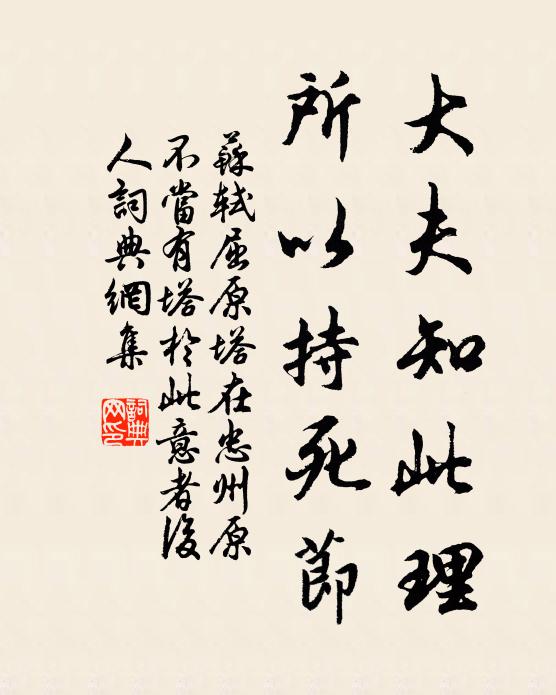 大夫知此理
所以持死節
蘇軾屈原塔在忠州原
不當有塔於此意者後
人詞典網集
詞典
网印